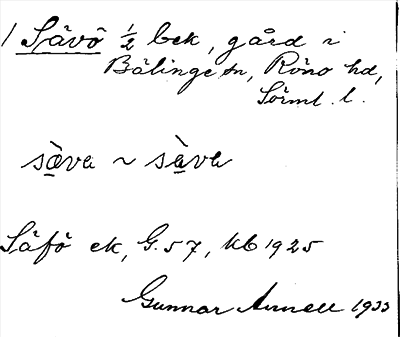 1 Sävö ½ bek, gård i
Bälinge sn, Rönö hd,
Sörml. l.
sä̀va ~ sä̀va
Säfö ek, G. 57, kb 1925
Gunnar 1933